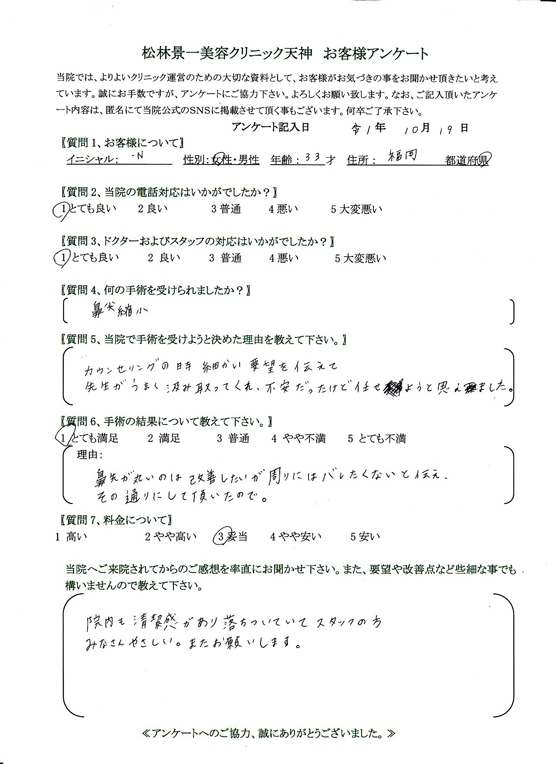 松林景一美容クリニック天神 お客様アンケート
当院では、よりよいクリニック運営のための大切な資料として、お客様がお気づきの事をお聞かせ頂きたいと考え
ています。誠にお手数ですが、アンケートにご協力下さい。よろしくお願い致します。なお、ご記入頂いたアンケ
ート内容は、匿名にて当院公式のSNSに掲載させて頂く事もございます。何卒ご了承下さい。
アンケート記入日 令1年 10月 19日
【質問1、お客様について】
イニシャル: ・N 性別:女性・男性 年齢:33才 住所: 福岡 都道府県
【質問2、当院の電話対応はいかがでしたか?】
1とても良い 2良い 3普通 4悪い 5大変悪い
【質問3、ドクターおよびスタッフの対応はいかがでしたか?】
1とても良い 2 良い 3 普通 4悪い 5大変悪い
【質問4、何の手術を受けられましたか?】
鼻尖縮小
【質問5、当院で手術を受けようと決めた理由を教えて下さい。】
カウンセリングの時 細かい要望を伝えて
先生がうまく汲み取ってくれ、不安だったけど任せようと思えました。
【質問6、手術の結果について教えて下さい。】
1とても満足 2 満足 3 普通 4 やや不満 5 とても不満
理由:
鼻先が丸いのは改善したいが周りにはバレたくないと伝え、
その通りにして頂いたので。
【質問7、料金について】
1 高い 2やや高い 3妥当 4やや安い 5安い
当院へご来院されてからのご感想を率直にお聞かせ下さい。また、要望や改善点など些細な事でも
構いませんので教えて下さい。
院内も清潔感があり落ちついていてスタッフの方
みなさんやさしい。またお願いします。
≪アンケートへのご協力、誠にありがとうございました。≫